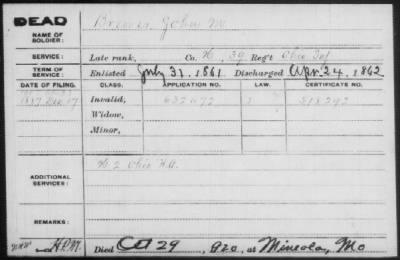 DEAD
NAME OF SOLDIER: Brewer, John M.
SERVICE: Late rank, Co. H, 39 Reg't Ohio Inf
TERM OF SERVICE: Enlisted July 31, 1861 Discharged Apr. 24, 1862
DATE OF FILING. CLASS. APPLICATION NO. LAW. CERTIFICATE NO.
1887 Dec 17 Invalid, 632072
Widow,
Minor,
ADDITIONAL SERVICES: H 2 Ohio H.A.
REMARKS:
Died Oct 29, 920, at Mineola, Mo